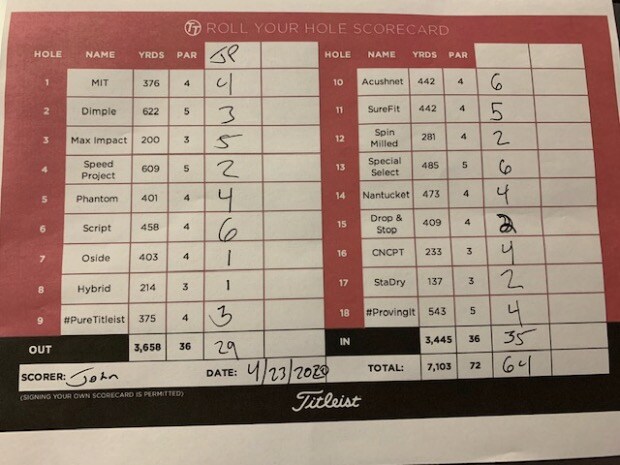 TT ROLL YOUR HOLE SCORECARD
HOLE NAME YRDS PAR JP
1 MIT 376 4 4
2 Dimple 622 5 3
3 Max Impact 200 3 5
4 Speed Project 609 5 2
5 Phantom 401 4 4
6 Script 458 4 6
7 Oside 403 4 1
8 Hybrid 214 3 1
9 #PureTitleist 375 4 3
OUT 3,658 36 29
SCORER: John DATE: 4/23/2020
(SIGNING YOUR OWN SCORECARD IS PERMITTED)
HOLE NAME YRDS PAR
10 Acushnet 442 4 6
11 SureFit 442 4 5
12 Spin Milled 281 4 2
13 Special Select 485 5 6
14 Nantucket 473 4 4
15 Drop & Stop 409 4 2
16 CNCPT 233 3 4
17 StaDry 137 3 2
18 #ProvingIt 543 5 4
IN 3,445 36 35
TOTAL: 7,103 72 64
Titleist